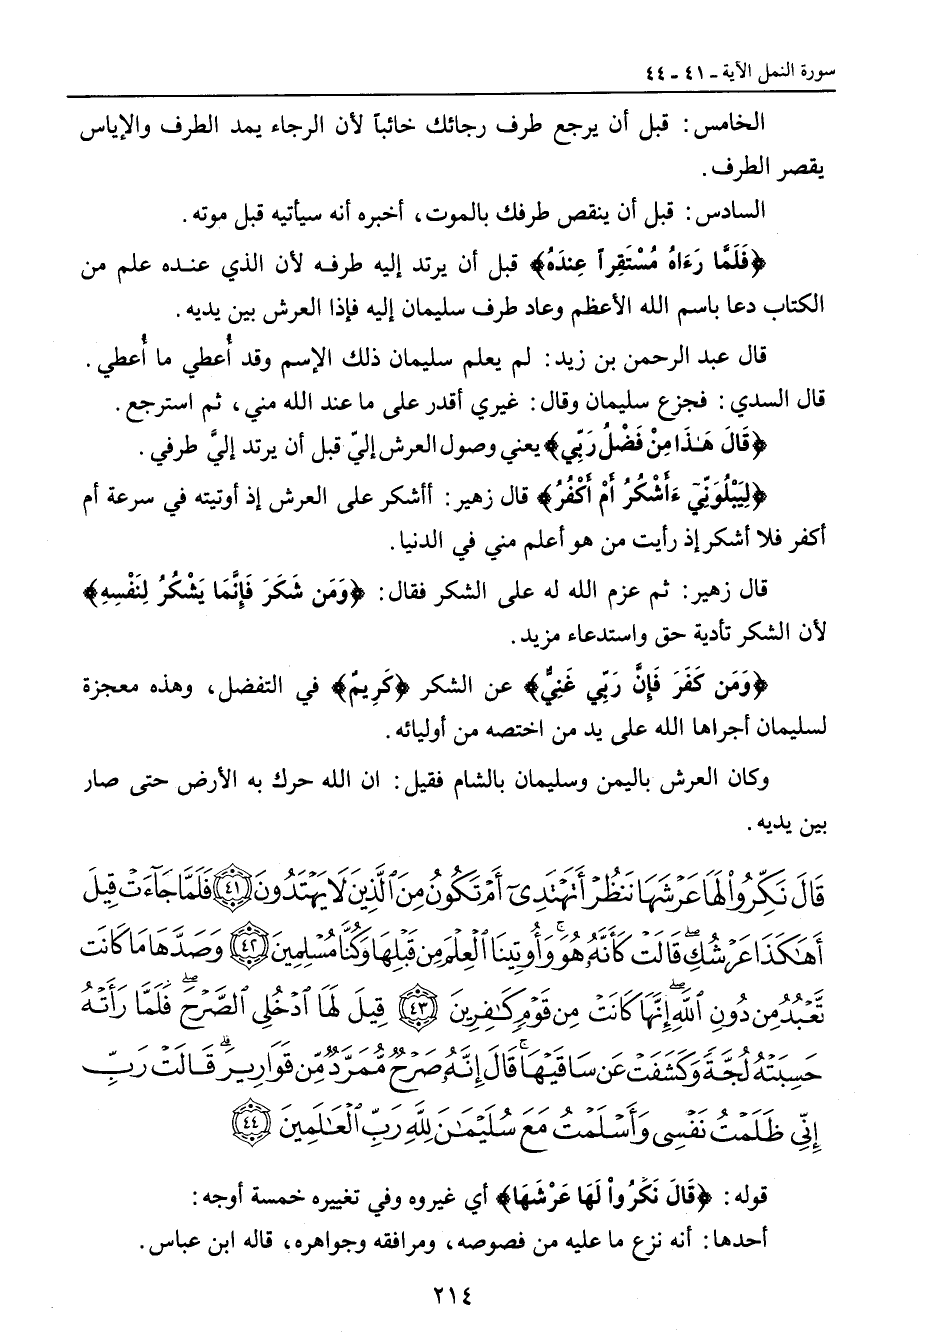 سورة النمل الآية ـ ٤١ ـ ٤٤
الخامس: قبل أن يرجع طرف رجائك خائباً لأن الرجاء يمد الطرف والإياس
يقصر الطرف.
السادس: قبل أن ينقص طرفك بالموت، أخبره أنه سيأتيه قبل موته.
﴿فَلَمَّا رَءَاهُ مُسْتَقِراً عِندَهُ﴾ قبل أن يرتد إليه طرفه لأن الذي عنده علم من
الكتاب دعا باسم الله الأعظم وعاد طرف سليمان إليه فإذا العرش بين يديه.
قال عبد الرحمن بن زيد: لم يعلم سليمان ذلك الإسم وقد أُعطي ما أُعطي.
قال السدي: فجزع سليمان وقال: غيري أقدر على ما عند الله مني، ثم استرجع.
﴿قَالَ هَـٰذَا مِنْ فَضْلُ رَبِّي﴾ يعني وصول العرش إليّ قبل أن يرتد إليَّ طرفي.
﴿لِيَبْلُوَنِّيٓ ءَأَشْكُرُ أَمْ أَكْفُرُ﴾ قال زهير: أأشكر على العرش إذ أوتيته في سرعة أم
أكفر فلا أشكر إذ رأيت من هو أعلم مني في الدنيا.
قال زهير: ثم عزم الله له على الشكر فقال: ﴿وَمَن شَكَرَ فَإِنَّمَا يَشْكُرُ لِنَفْسِهِ﴾
لأن الشكر تأدية حق واستدعاء مزيد.
﴿وَمَن كَفَرَ فَإِنَّ رَبِّي غَنِيٌّ﴾ عن الشكر ﴿كَرِيمٌ﴾ في التفضل، وهذه معجزة
لسليمان أجراها الله على يد من اختصه من أوليائه.
وكان العرش باليمن وسليمان بالشام فقيل: ان الله حرك به الأرض حتى صار
بين يديه.
قَالَ نَكِّرُواْ لَهَا عَرْشَهَا نَنظُرْ أَتَهْتَدِىٓ أَمْ تَكُونُ مِنَ ٱلَّذِينَ لَا يَهْتَدُونَ ﴿٤١﴾ فَلَمَّا جَآءَتْ قِيلَ
أَهَـٰكَذَا عَرْشُكِ ۖ قَالَتْ كَأَنَّهُۥ هُوَ ۚ وَأُوتِينَا ٱلْعِلْمَ مِن قَبْلِهَا وَكُنَّا مُسْلِمِينَ ﴿٤٢﴾ وَصَدَّهَا مَا كَانَت
تَّعْبُدُ مِن دُونِ ٱللَّهِ ۖ إِنَّهَا كَانَتْ مِن قَوْمٍ كَـٰفِرِينَ ﴿٤٣﴾ قِيلَ لَهَا ٱدْخُلِى ٱلصَّرْحَ ۖ فَلَمَّا رَأَتْهُ
حَسِبَتْهُ لُجَّةً وَكَشَفَتْ عَن سَاقَيْهَا ۚ قَالَ إِنَّهُۥ صَرْحٌ مُّمَرَّدٌ مِّن قَوَارِيرَ ۗ قَالَتْ رَبِّ
إِنِّى ظَلَمْتُ نَفْسِى وَأَسْلَمْتُ مَعَ سُلَيْمَـٰنَ لِلَّهِ رَبِّ ٱلْعَـٰلَمِينَ ﴿٤٤﴾
قوله: ﴿قَالَ نَكِّرُواْ لَهَا عَرْشَهَا﴾ أي غيروه وفي تغييره خمسة أوجه:
أحدها: أنه نزع ما عليه من فصوصه، ومرافقه وجواهره، قاله ابن عباس.
٢١٤